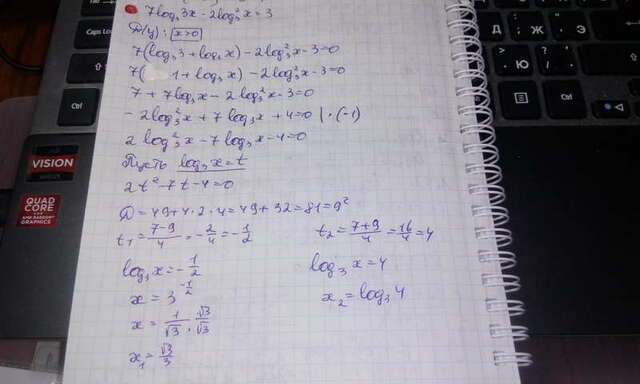 7log₃3x - 2log₃²x = 3
D(y): x>0
7(log₃3 + log₃x) - 2log₃²x - 3 = 0
7(1 + log₃x) - 2log₃²x - 3 = 0
7 + 7log₃x - 2log₃²x - 3 = 0
- 2log₃²x + 7log₃x + 4 = 0 | · (-1)
2log₃²x - 7log₃x - 4 = 0
Пусть log₃x = t
2t² - 7t - 4 = 0
D = 49 + 4·2·4 = 49 + 32 = 81 = 9²
t₁ = (7-9)/4 = -2/4 = -1/2
t₂ = (7+9)/4 = 16/4 = 4
log₃x = -1/2
log₃x = 4
x = 3^(-1/2)
x₂ = log₃4
x = 1/√3 · √3/√3
x₁ = √3/3
Caps Lo
Ctrl
Alt
Ctrl
VISION
AMD
QUAD
CORE
AMD RADEON™
GRAPHICS